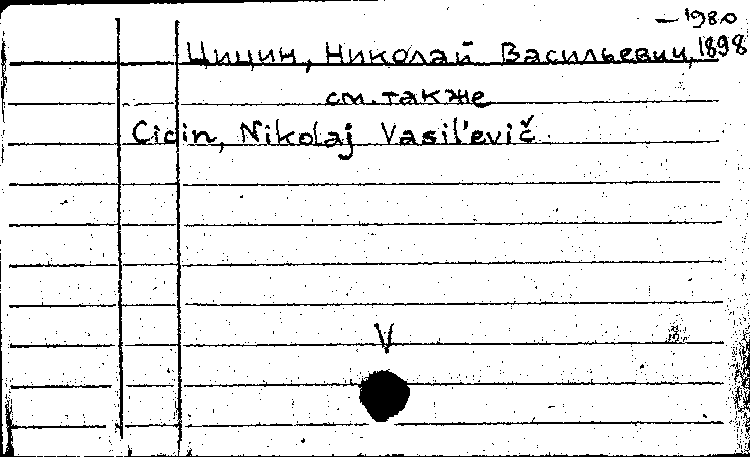 – 1980
Цицин, Николай Васильевич, 1898
см. также
Cicin, Nikolaj Vasil'evič.
V